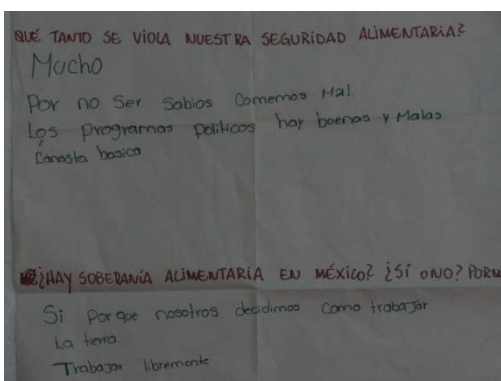 QUÉ TANTO SE VIOLA NUESTRA SEGURIDAD ALIMENTARIA?
Mucho
Por no Ser Sabios Comemos Mal.
Los Programas Politicos hay buenas y Malas
Canasta basica
¿HAY SOBERANÍA ALIMENTARIA EN MÉXICO? ¿SÍ O NO?
Si Porque nosotros decidimos Como trabajar
La tierra.
Trabajar libremente